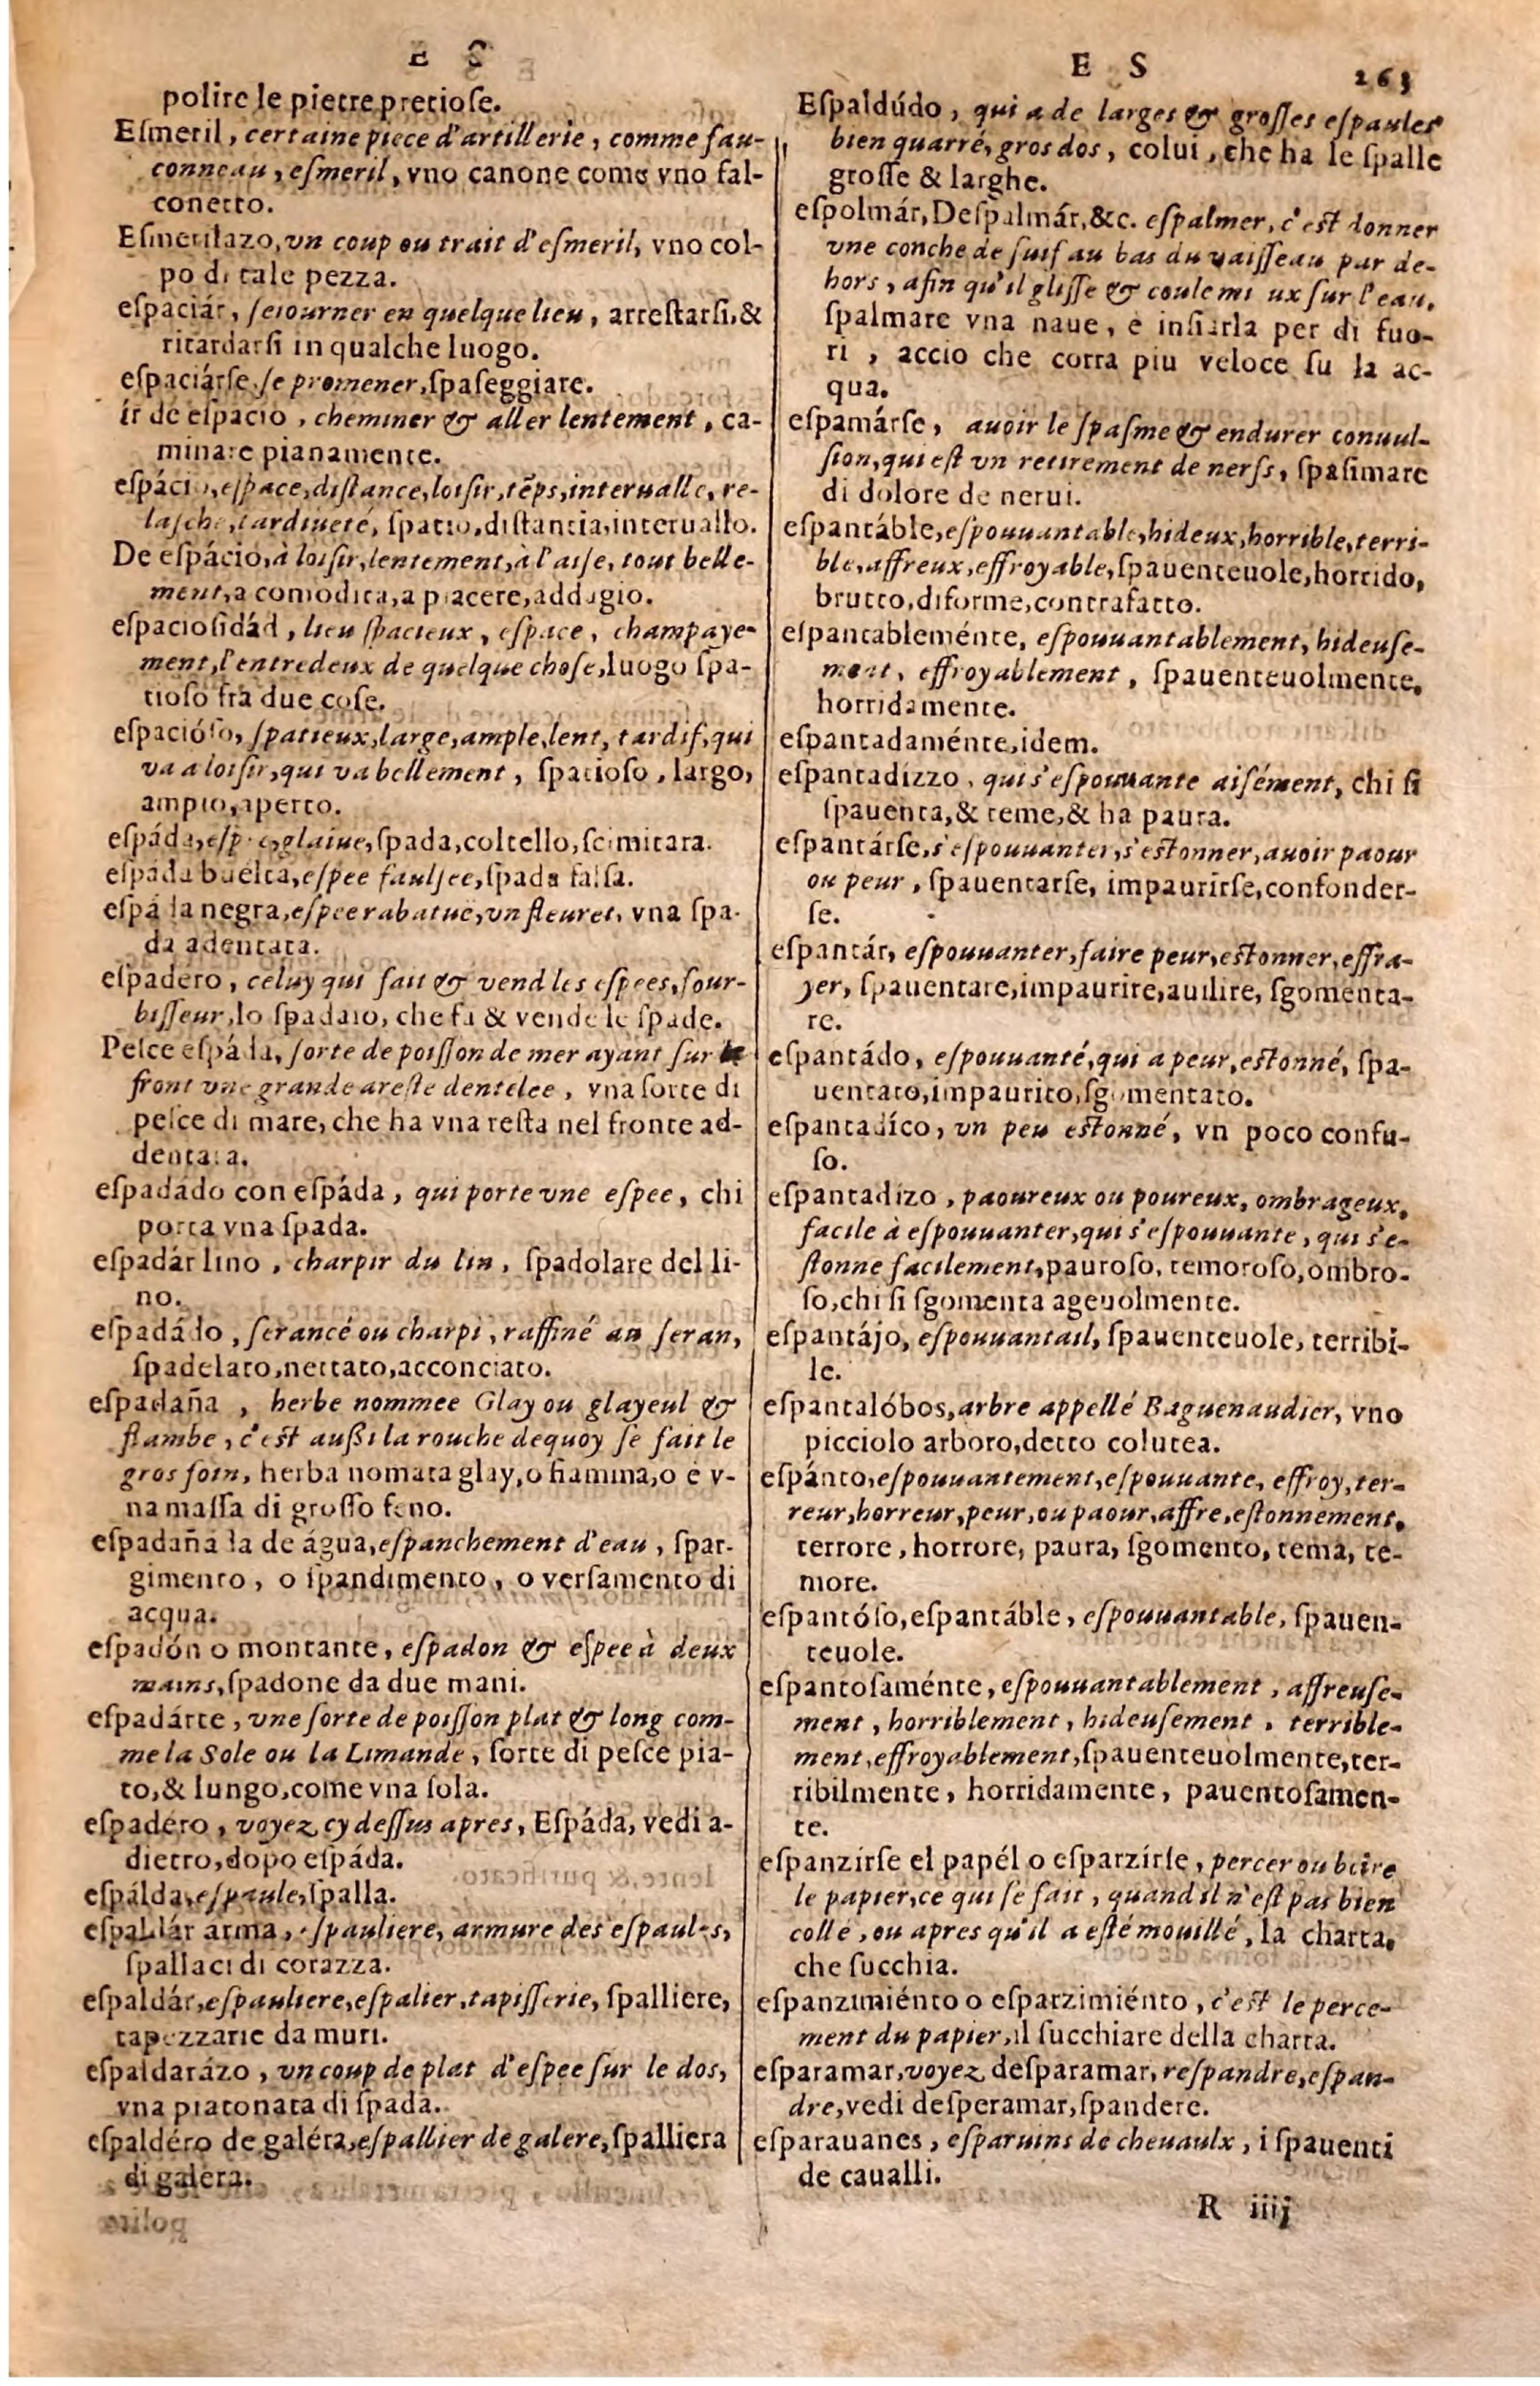 E S
poliré le pietre pretioſe.
Eſmeril, certaine piece d'artillerie, comme fau-
conneau, eſmeril, vno canone come vno fal-
conetto.
Eſmerilazo, vn coup ou trait d'eſmeril, vno col-
po di tale pezza.
eſpaciár, ſeiourner en quelque lieu, arreſtarſi, &
ritardarſi in qualche luogo.
eſpaciárſe, ſe promener, ſpaſeggiare.
ír de eſpacio, cheminer & aller lentement, ca-
minare pianamente.
eſpácio, eſpace, diſtance, loiſir, tẽps, interualle, re-
laſche, tardiueté, ſpatio, diſtantia, interuallo.
De eſpácio, à loiſir, lentement, à l'aiſe, tout belle-
ment, a comodita, a piacere, addagio.
eſpacioſidád, lieu ſpacieux, eſpace, champaye-
ment, l'entredeux de quelque choſe, luogo ſpa-
tioſo frà due coſe.
eſpacióſo, ſpatieux, large, ample, lent, tardif, qui
va a loiſir, qui va bellement, ſpatioſo, largo,
ampio, aperto.
eſpáda, eſpee, glaiue, ſpada, coltello, ſcimitara.
eſpáda buélta, eſpee faulſee, ſpada falſa.
eſpáda negra, eſpee rabatue, vn fleuret, vna ſpa-
da adentata.
eſpadero, celuy qui fait & vend les eſpees, four-
biſſeur, lo ſpadaio, che fa & vende le ſpade.
Peſce eſpáda, ſorte de poiſſon de mer ayant ſur le
front vne grande areſte dentelee, vna ſorte di
peſce di mare, che ha vna reſta nel fronte ad-
dentata.
eſpadádo con eſpáda, qui porte vne eſpee, chi
porta vna ſpada.
eſpadár lino, charpir du lin, ſpadolare del li-
no.
eſpadádo, ſerancé ou charpi, raffiné au ſeran,
ſpadelato, nettato, acconciato.
eſpadaña, herbe nommee Glay ou glayeul &
flambe, c'eſt außi la rouche dequoy ſe fait le
gros foin, herba nomata glay, o fiamma, o è v-
na maſſa di groſſo feno.
eſpadañáda de água, eſpanchement d'eau, ſpar-
gimento, o ſpandimento, o verſamento di
acqua.
eſpadón o montante, eſpadon & eſpee à deux
mains, ſpadone da due mani.
eſpadárte, vne ſorte de poiſſon plat & long com-
me la Sole ou la Limande, ſorte di peſce pia-
to, & lungo, come vna ſola.
eſpadéro, voyez cy deſſus apres, Eſpáda, vedi a-
dietro, dopo eſpáda.
eſpálda, eſpaule, ſpalla.
eſpaldár arma, eſpauliere, armure des eſpaules,
ſpallaci di corazza.
eſpaldár, eſpauliere, eſpalier, tapiſſerie, ſpalliere,
tapezzarie da muri.
eſpaldarázo, vn coup de plat d'eſpee ſur le dos,
vna piatonata di ſpada.
eſpaldéro de galéra, eſpallier de galere, ſpalliera
di galera.
E S 263
Eſpaldúdo, qui a de larges & groſſes eſpaules
bien quarré, gros dos, colui, che ha le ſpalle
groſſe & larghe.
eſpolmár, Deſpalmár, &c. eſpalmer, c'eſt donner
vne conche de ſuif au bas du vaiſſeau par de-
hors, afin qu'il gliſſe & coule mieux ſur l'eau,
ſpalmare vna naue, e inſiarla per di fuo-
ri, accio che corra piu veloce ſu la ac-
qua.
eſpamárſe, auoir le ſpaſme & endurer conuul-
ſion, qui eſt vn retirement de nerfs, ſpaſimare
di dolore de nerui.
eſpantáble, eſpouuantable, hideux, horrible, terri-
ble, affreux, effroyable, ſpauenteuole, horrido,
brutto, diforme, contrafatto.
eſpantableménte, eſpouuantablement, hideuſe-
ment, effroyablement, ſpauenteuolmente,
horridamente.
eſpantadaménte, idem.
eſpantadízzo, qui s'eſpouuante aiſément, chi ſi
ſpauenta, & teme, & ha paura.
eſpantárſe, s'eſpouuanter, s'eſtonner, auoir paour
ou peur, ſpauentarſe, impaurirſe, confonder-
ſe.
eſpantár, eſpouuanter, faire peur, eſtonner, effra-
yer, ſpauentare, impaurire, auilire, ſgomenta-
re.
eſpantádo, eſpouuanté, qui a peur, eſtonné, ſpa-
uentato, impaurito, ſgomentato.
eſpantadíco, vn peu eſtonné, vn poco confu-
ſo.
eſpantadizo, paoureux ou poureux, ombrageux,
facile à eſpouuanter, qui s'eſpouuante, qui s'e-
ſtonne facilement, pauroſo, temoroſo, ombro-
ſo, chi ſi ſgomenta ageuolmente.
eſpantájo, eſpouuantail, ſpauenteuole, terribi-
le.
eſpantalóbos, arbre appellé Baguenaudier, vno
picciolo arboro, detto colutea.
eſpánto, eſpouuantement, eſpouuante, effroy, ter-
reur, horreur, peur, ou paour, affre, eſtonnement,
terrore, horrore, paura, ſgomento, tema, te-
more.
eſpantóſo, eſpantáble, eſpouuantable, ſpauen-
teuole.
eſpantoſaménte, eſpouuantablement, affreuſe-
ment, horriblement, hideuſement, terrible-
ment, effroyablement, ſpauenteuolmente, ter-
ribilmente, horridamente, pauentoſamen-
te.
eſpanzirſe el papél o eſparzírſe, percer ou boire
le papier, ce qui ſe fait, quand il n'eſt pas bien
collé, ou apres qu'il a eſté mouillé, la charta,
che ſucchia.
eſpanzimiénto o eſparzimiénto, c'eſt le perce-
ment du papier, il ſucchiare della charta.
eſparamar, voyez deſparamar, reſpandre, eſpan-
dre, vedi deſperamar, ſpandere.
eſparauanes, eſparuins de cheuaulx, i ſpauenti
de caualli.
R iiij